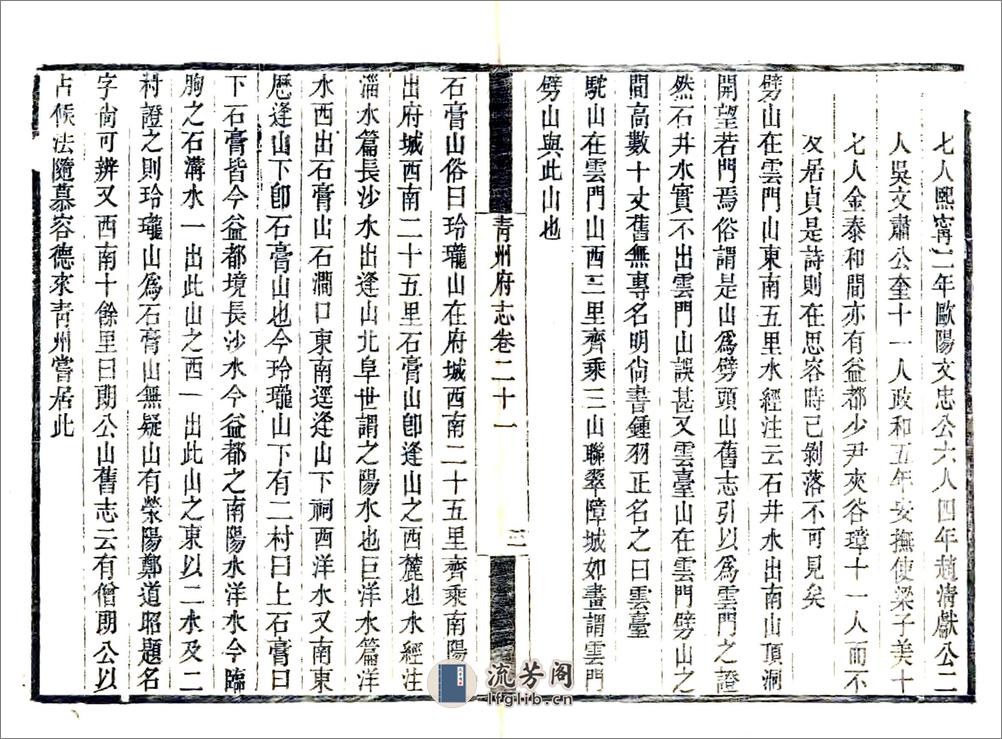 七人熙寧二年歐陽文忠公六人四年趙清獻公二
人吳文肅公奎十一人政和五年安撫使梁子美十
七人金泰和間亦有益都少尹夾谷璋十一人而不
及居貞是詩則在思容時已剝落不可見矣
劈山在雲門山東南五里水經注云石井水出南山頂洞
開望若門焉俗謂是山爲劈頭山舊志引以爲雲門之證
然石井水實不出雲門山誤甚又雲臺山在雲門劈山之
間高數十丈舊無專名明尙書鍾羽正名之曰雲臺
駝山在雲門山西三里齊乘三山聯翠障城如畫謂雲門
劈山與此山也
青州府志卷二十一
三
石膏山俗曰玲瓏山在府城西南二十五里齊乘南陽
出府城西南二十五里石膏山卽逢山之西麓也水經注
淄水篇長沙水出逢山北阜世謂之陽水也巨洋水篇洋
水西出石膏山石澗口東南逕逢山下祠西洋水又南東
歷逢山下卽石膏山也今玲瓏山下有二村曰上石膏曰
下石膏皆今益都境長沙水今益都之南陽水洋水今臨
朐之石溝水一出此山之西一出此山之東以二水及二
村證之則玲瓏山爲石膏山無疑山有滎陽鄭道昭題名
字尙可辨又西南十餘里曰朗公山舊志云有僧朗公以
占候法隨慕容德來青州嘗居此
流芳阁
lfglib.cn